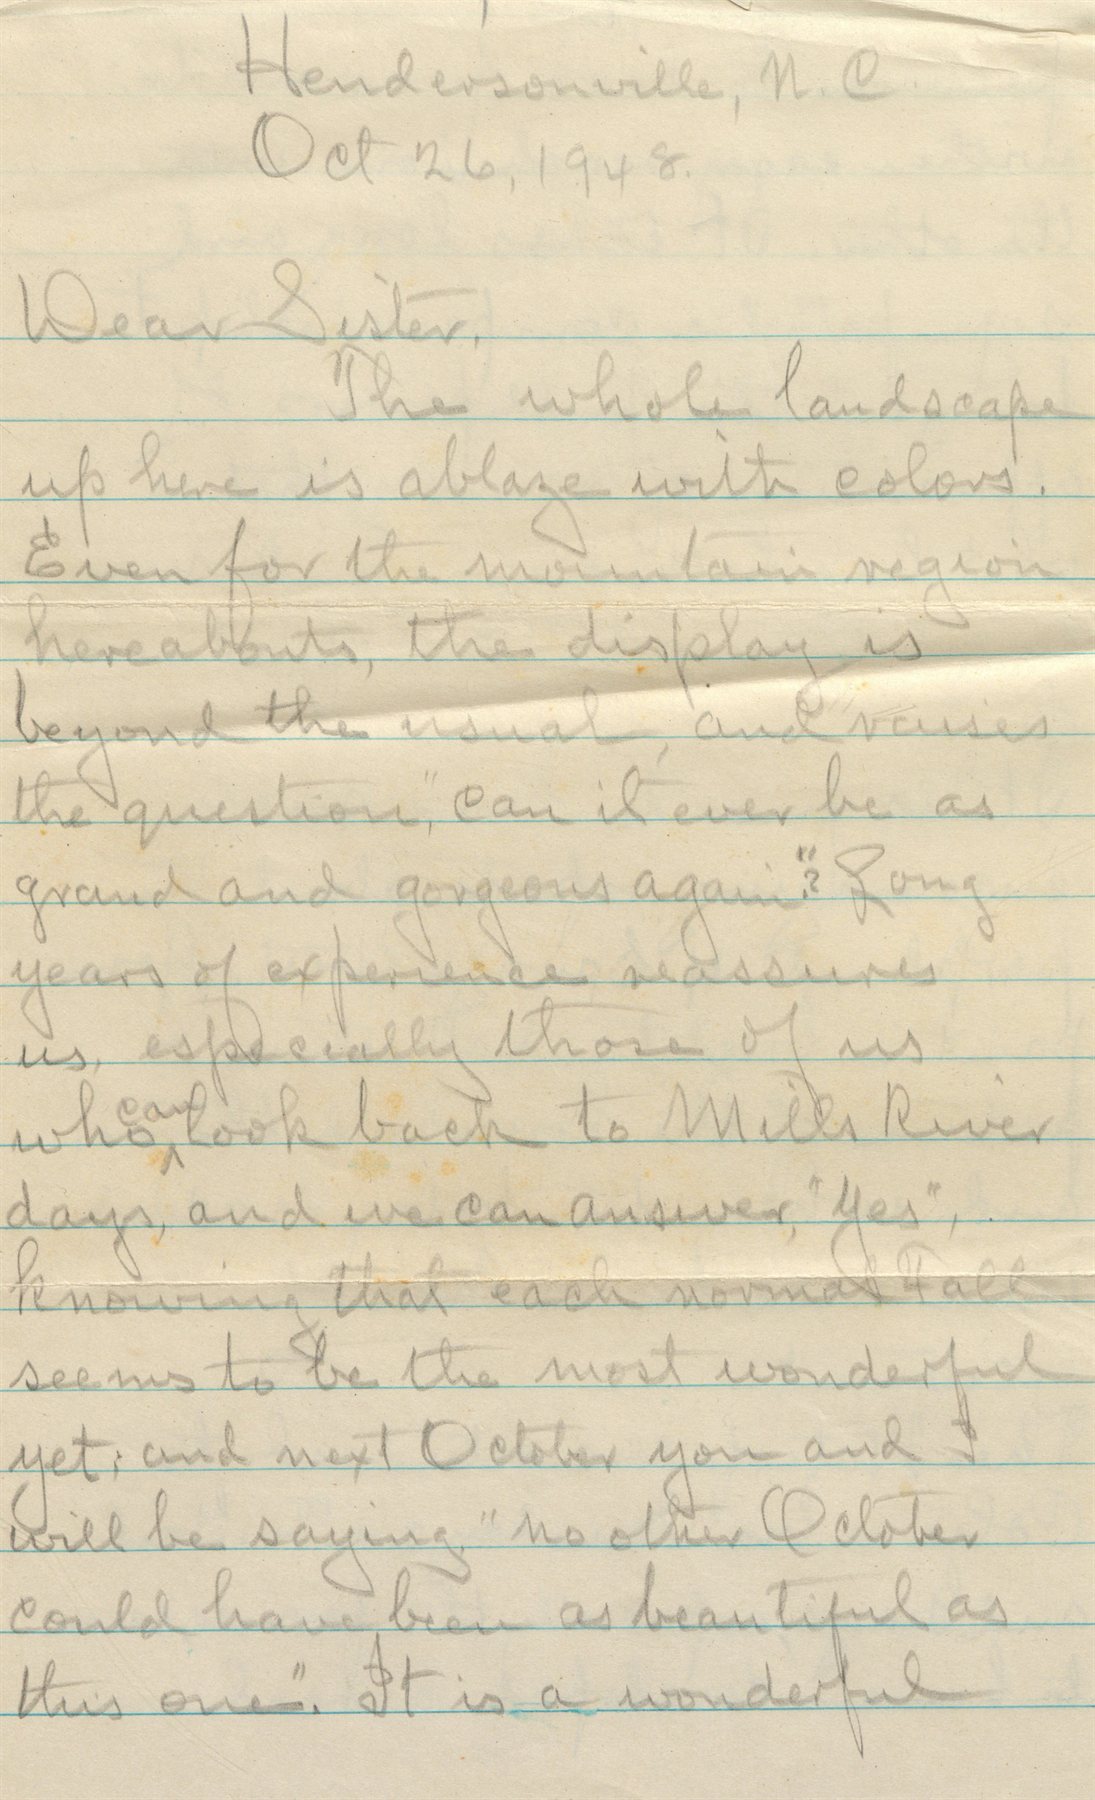 Hendersonville, N. C.
Oct 26, 1948.
Dear Sister,
The whole landscape
up here is ablaze with colors.
Even for the mountain region
hereabouts, the display is
beyond the usual, and raises
the question, "can it ever be as
grand and gorgeous again"? Long
years of experience reassures
us, especially those of us
who can look back to Mills River
days, and we can answer, "Yes",
knowing that each normal Fall
seems to be the most wonderful
yet; and next October you and I
will be saying, "no other October
could have been as beautiful as
this one". It is a wonderful